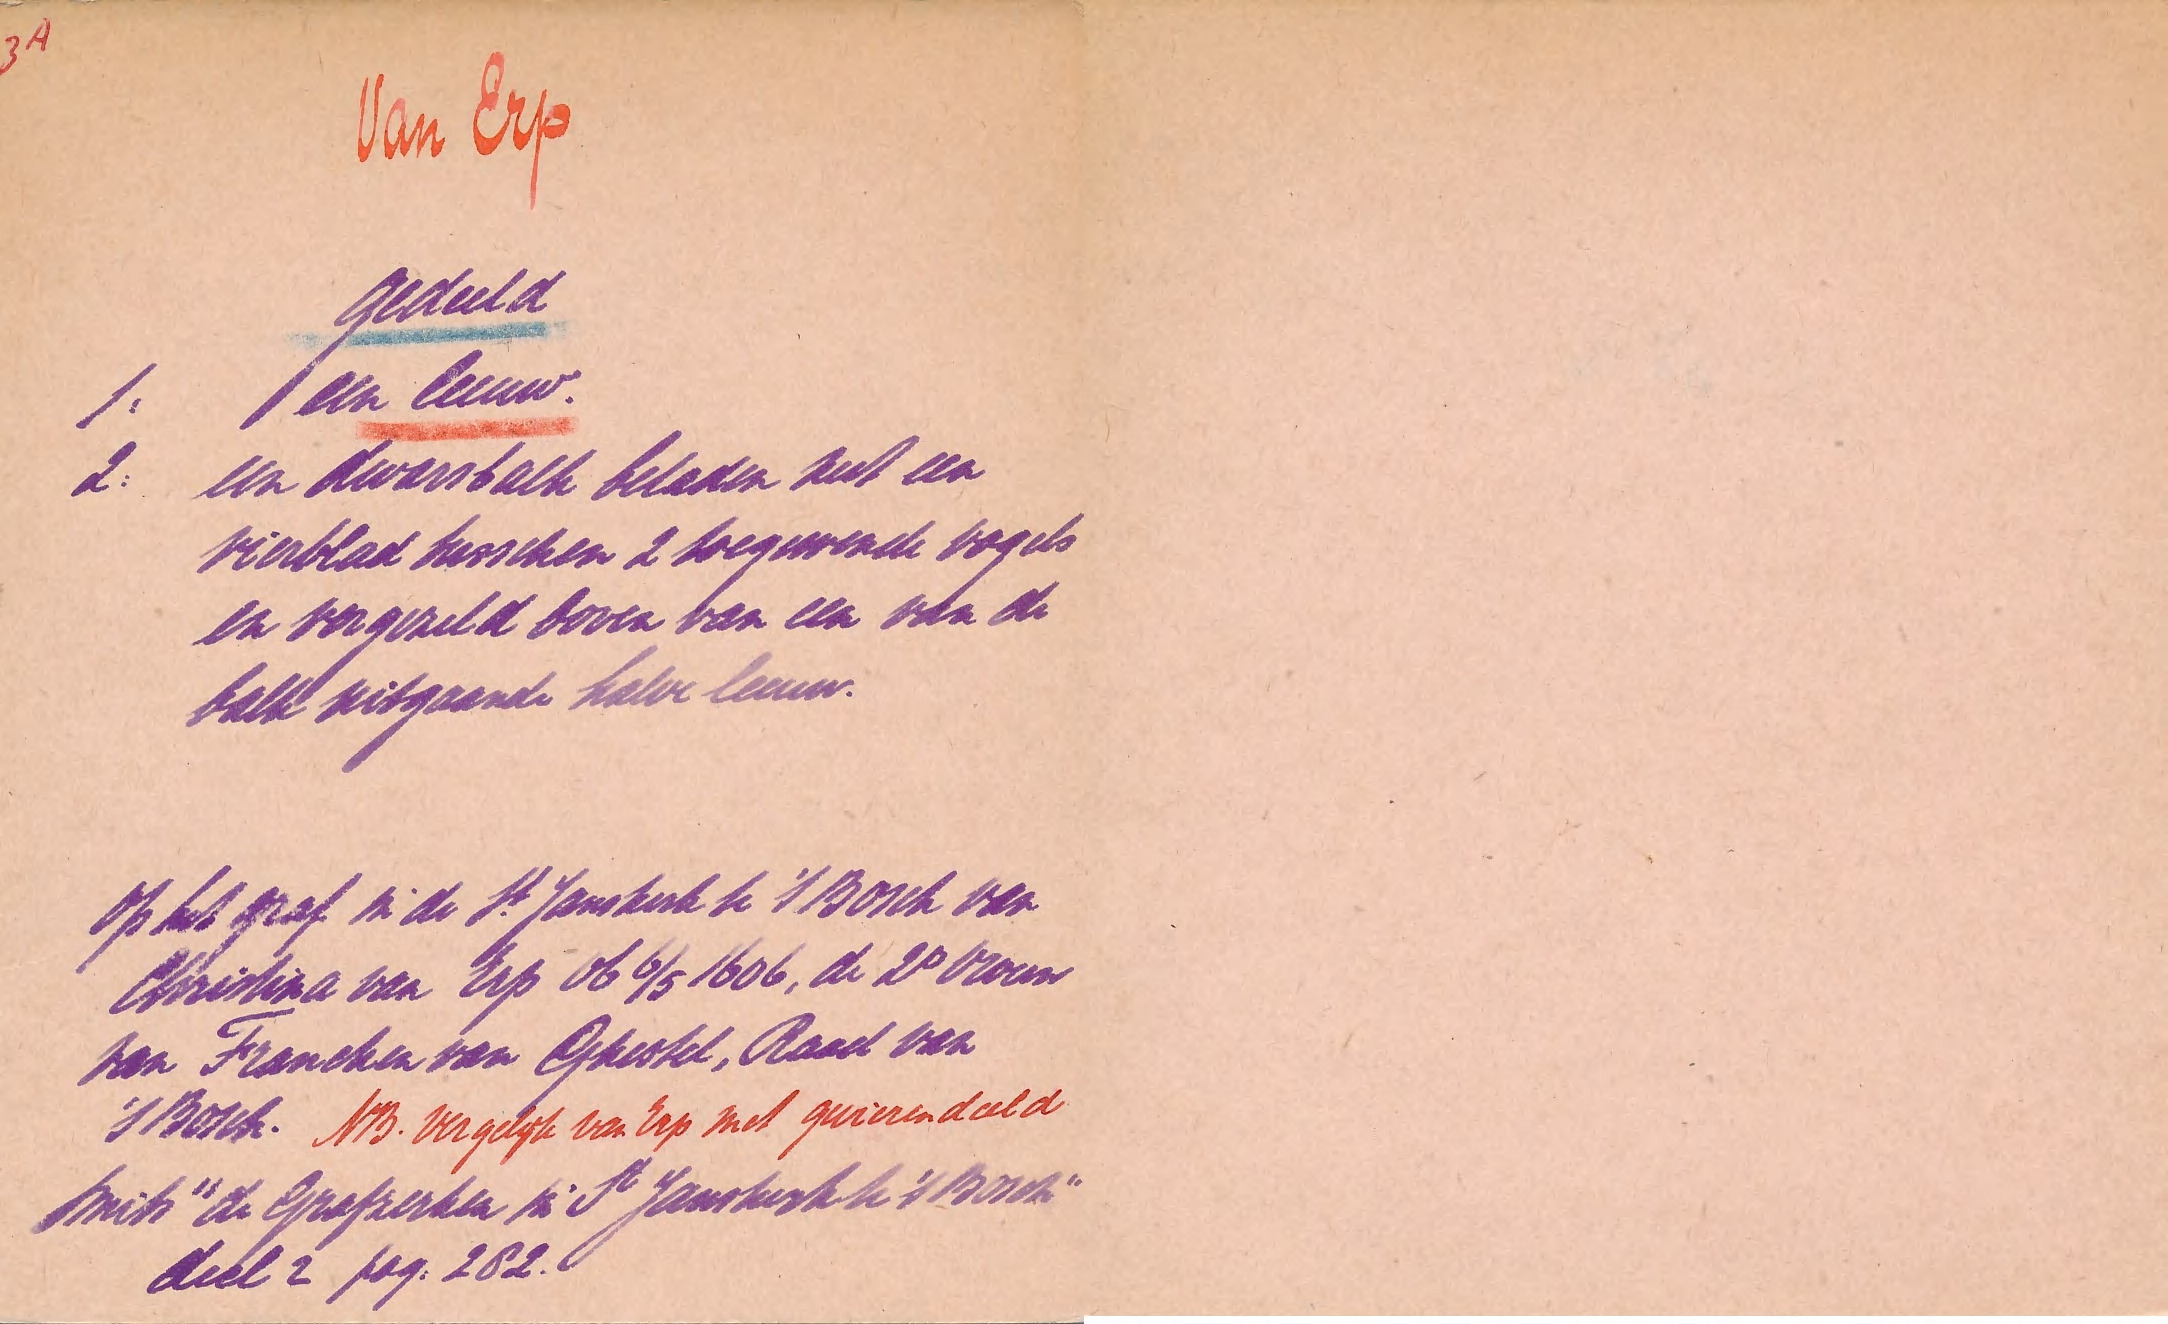 3A
Van Erp
gedeeld
1: een leeuw.
2: een dwarsbalk beladen met een
vierblad tusschen 2 toegewende vogels
en vergezeld boven van een van de
balk uitgaande halve leeuw.
Op het graf in de St. Janskerk te 's Bosch van
Christina van Erp ob 6/5 1606, de 2e vrouw
van Francken van Ghestel, Raad van
's Bosch. NB. vergelijk van Erp met gevierendeeld
Smits "de Grafzerken in St Janskerk te 's Bosch"
deel 2 pag. 282.